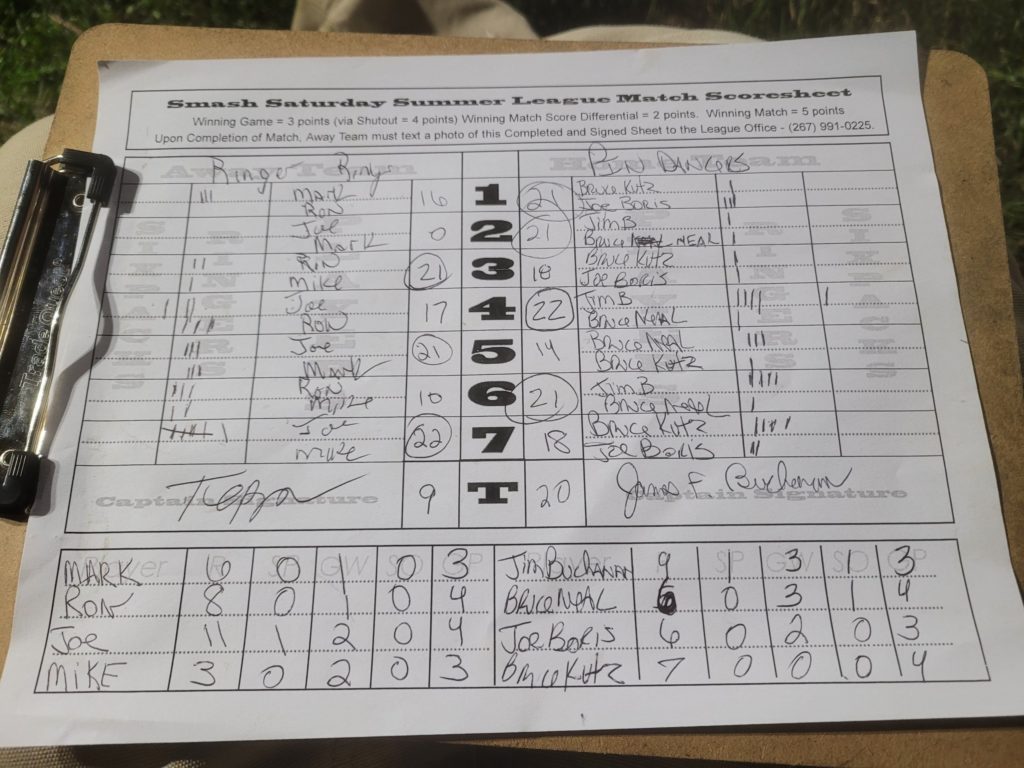 Smash Saturday Summer League Match Scoresheet
Winning Game = 3 points (via Shutout = 4 points) Winning Match Score Differential = 2 points. Winning Match = 5 points
Upon Completion of Match, Away Team must text a photo of this Completed and Signed Sheet to the League Office - (267) 991-0225.
Away Team Home Team
MARK 16 1 21 Bruce Kutz
RON JOE BORIS
Joe 0 2 21 Jim B
Mark Bruce NEAL
RON 21 3 18 Bruce Kutz
mike JOE BORIS
Joe 17 4 22 Jim B
RON Bruce NEAL
Joe 21 5 14 Bruce NEAL
MARK Bruce Kutz
RON 10 6 21 Jim B
mike Bruce NEAL
Joe 22 7 18 Bruce Kutz
mike JOE BORIS
Captain Signature 9 T 20 James F Buchanan Captain Signature
MARK 6 0 1 0 3 Jim BUCHANAN 9 1 3 1 3
RON 8 0 1 0 4 BRUCE NEAL 6 0 3 1 4
JOE 11 1 2 0 4 JOE BORIS 6 0 2 0 3
MIKE 3 0 2 0 3 BRUCE KUTZ 7 0 0 0 4